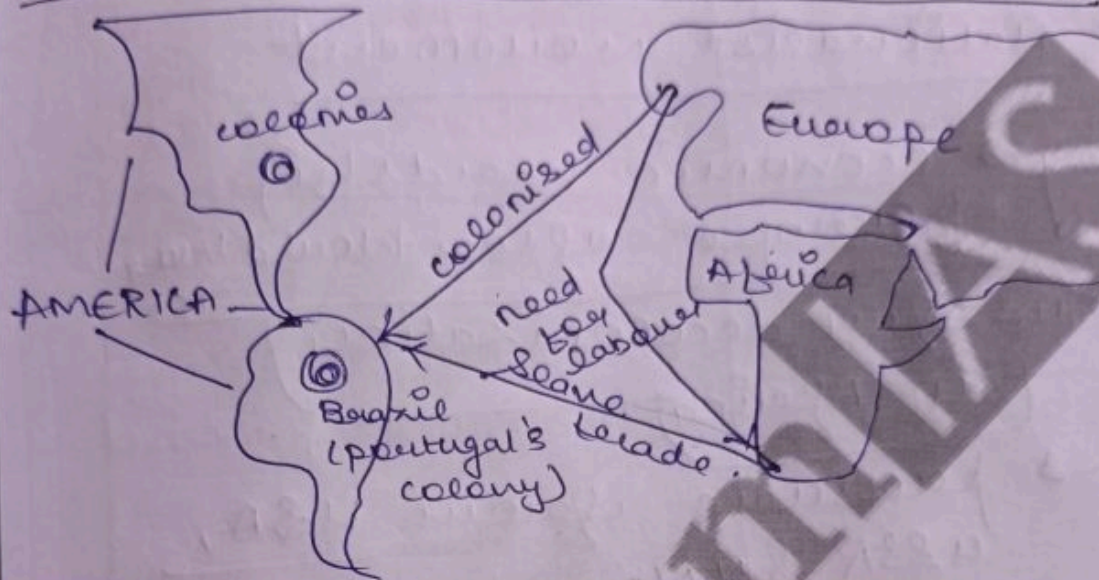 colonies
Europe
colonised
Africa
AMERICA
need
for
labour
Slave
trade.
Brazil
(portugal's
colony)